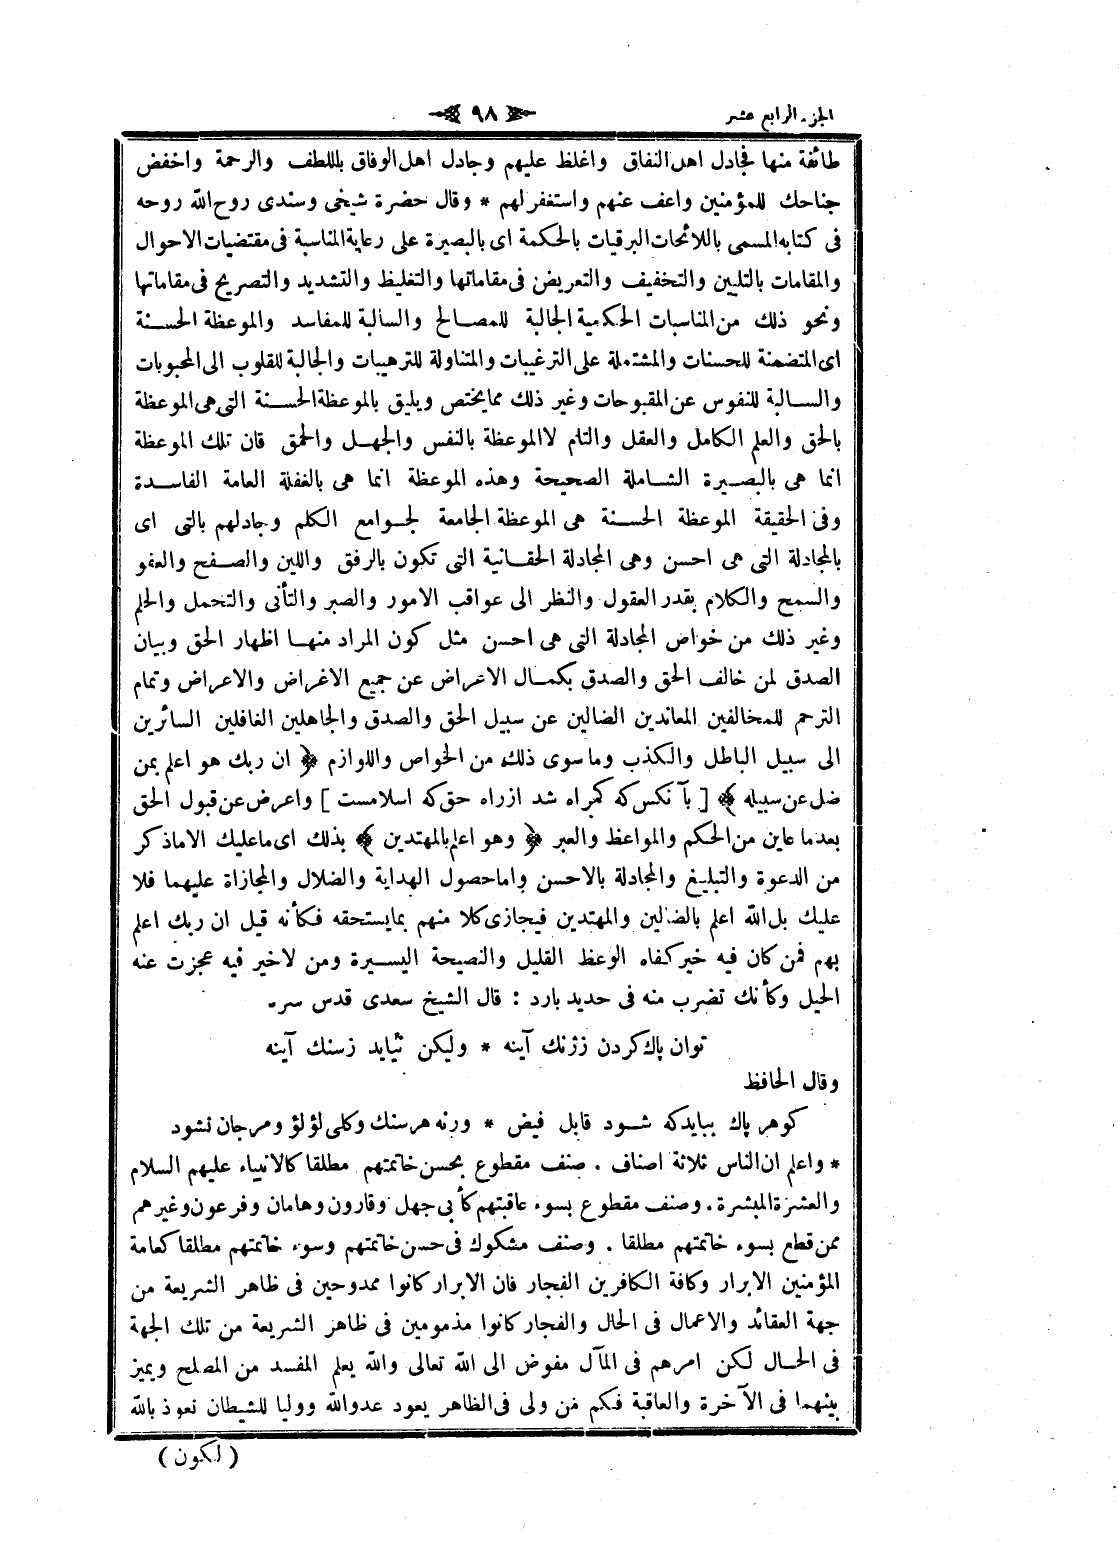 الجزء الرابع عشر ٩٨
طائفة منها فجادل اهل النفاق واغلظ عليهم وجادل اهل الوفاق باللطف والرحمة واخفض
جناحك للمؤمنين واعف عنهم واستغفر لهم * وقال حضرة شيخى وسندى روح الله روحه
فى كتابه المسمى باللائحات البرقيات بالحكمة اى بالبصيرة على رعاية المناسبة فى مقتضيات الاحوال
والمقامات بالتليين والتخفيف والتعريض فى مقاماتها والتغليظ والتشديد والتصريح فى مقاماتها
ونحو ذلك من المناسبات الحكمية الجالبة للمصالح والسالبة للمفاسد والموعظة الحسنة
اى المتضمنة للحسنات والمشتملة على الترغيبات والمتناولة للترهيبات والجالبة للقلوب الى المحبوبات
والسالبة للنفوس عن المقبوحات وغير ذلك مما يختص ويليق بالموعظة الحسنة التى هى الموعظة
بالحق والعلم الكامل والعقل والتام لا الموعظة بالنفس والجهل والحمق فان تلك الموعظة
انما هى بالبصيرة الشاملة الصحيحة وهذه الموعظة انما هى بالغفلة العامة الفاسدة
وفى الحقيقة الموعظة الحسنة هى الموعظة الجامعة لجوامع الكلم وجادلهم بالتى اى
بالمجادلة التى هى احسن وهى المجادلة الحقانية التى تكون بالرفق واللين والصفح والعفو
والسمح والكلام بقدر العقول والنظر الى عواقب الامور والصبر والتأنى والتحمل والحلم
وغير ذلك من خواص المجادلة التى هى احسن مثل كون المراد منها اظهار الحق وبيان
الصدق لمن خالف الحق والصدق بكمال الاعراض عن جميع الاغراض والاعراض وتمام
الترحم للمخالفين المعاندين الضالين عن سبيل الحق والصدق والجاهلين الغافلين السائرين
الى سبيل الباطل والكذب وما سوى ذلك من الخواص واللوازم ﴿ ان ربك هو اعلم بمن
ضل عن سبيله ﴾ [ بآنكس كه كمراه شد ازراه حق كه اسلامست ] واعرض عن قبول الحق
بعدما عاين من الحكم والمواعظ والعبر ﴿ وهو اعلم بالمهتدين ﴾ بذلك اى ما عليك الا ما ذكر
من الدعوة والتبليغ والمجادلة بالاحسن واما حصول الهداية والضلال والمجازاة عليهما فلا
عليك بل الله اعلم بالضالين والمهتدين فيجازى كلا منهم بما يستحقه فكأنه قيل ان ربك اعلم
بهم فمن كان فيه خير كفاه الوعظ القليل والنصيحة اليسيرة ومن لاخير فيه عجزت عنه
الحيل وكأنك تضرب منه فى حديد بارد : قال الشيخ سعدى قدس سره
توان پاك كردن ززنك آينه * وليكن نيايد زسنك آينه
وقال الحافظ
كوهر پاك ببايد كه شود قابل فيض * ورنه هر سنك وكلى لؤلؤ ومرجان نشود
* واعلم ان الناس ثلاثة اصناف . صنف مقطوع بحسن خاتمتهم مطلقا كالانبياء عليهم السلام
والعشرة المبشرة . وصنف مقطوع بسوء عاقبتهم كأبى جهل وقارون وهامان وفرعون وغيرهم
ممن قطع بسوء خاتمتهم مطلقا . وصنف مشكوك فى حسن خاتمتهم وسوء خاتمتهم مطلقا كعامة
المؤمنين الابرار وكافة الكافرين الفجار فان الابرار كانوا ممدوحين فى ظاهر الشريعة من
جهة العقائد والاعمال فى الحال والفجار كانوا مذمومين فى ظاهر الشريعة من تلك الجهة
فى الحال لكن امرهم فى المآل مفوض الى الله تعالى والله يعلم المفسد من المصلح ويميز
بينهما فى الآخرة والعاقبة فكم من ولى فى الظاهر يعود عدو الله ووليا للشيطان نعوذ بالله
( لكون )